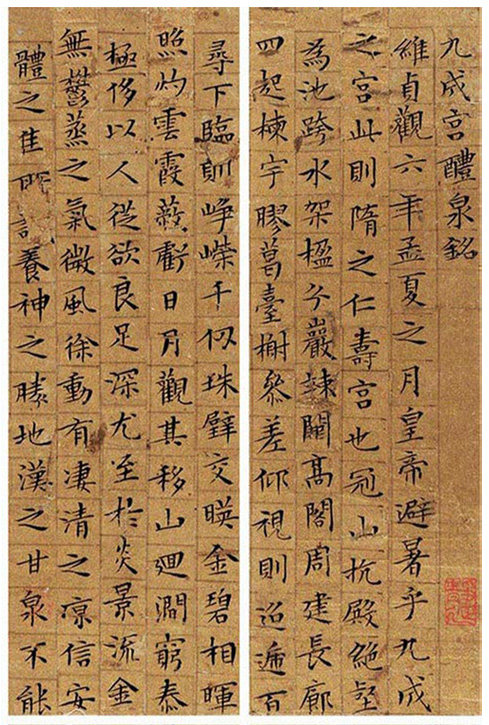 九成宮醴泉銘
維貞觀六年孟夏之月皇帝避暑乎九成
之宮此則隋之仁壽宮也冠山抗殿絕壑
為池跨水架楹分巖竦闕高閣周建長廊
四起棟宇膠葛臺榭參差仰視則迢遞百
尋下臨則崢嶸千仞珠璧交暎金碧相暉
照灼雲霞蔽虧日月觀其移山迴澗窮泰
極侈以人從欲良足深尤至於炎景流金
無鬱蒸之氣微風徐動有凄清之涼信安
體之佳所誠養神之勝地漢之甘泉不能